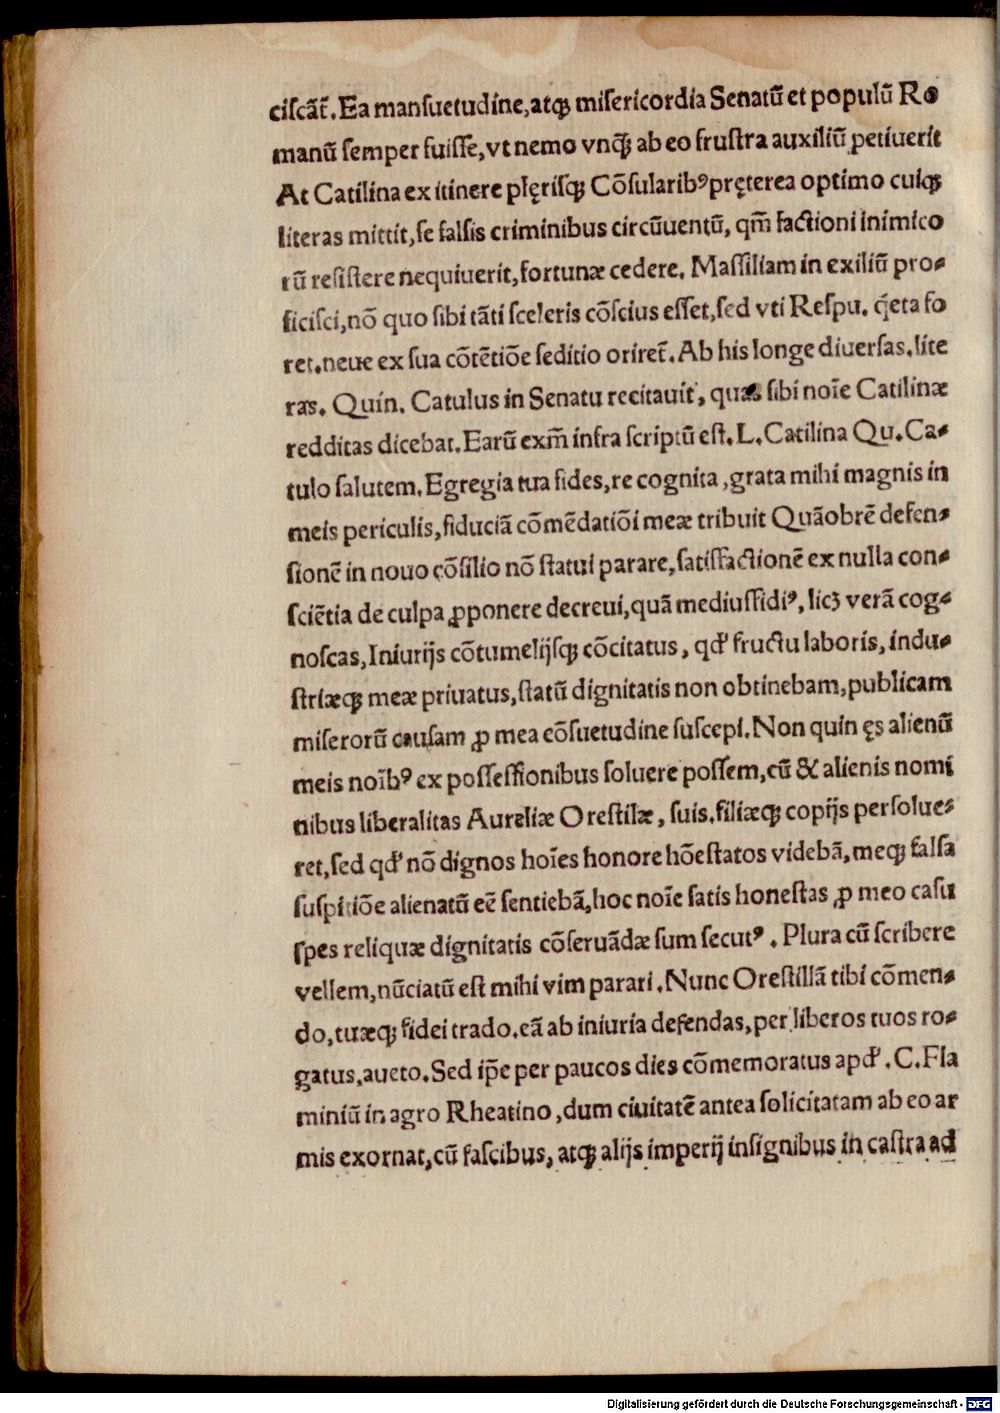 ciſcãt̃. Ea manſuetudine, atqȝ miſericordia Senatũ et populũ Ro
manũ ſemper fuiſſe, vt nemo vnq̃ȝ ab eo fruſtra auxiliũ petiuerit
At Catilina ex itinere plęriſqȝ Cõſularibꝰ pręterea optimo cuiqȝ
literas mittit, ſe falſis criminibus circũuentũ, qm̃ factioni inimico
rũ reſiſtere nequiuerit, fortunæ cedere. Maſſiliam in exiliũ pro⸗
ficiſci, nõ quo ſibi tãti ſceleris cõſcius eſſet, ſed vti Reſpu. q̃eta fo
ret. neue ex ſua cõtẽtiõe ſeditio oriret̃. Ab his longe diuerſas. lite
ras. Quin. Catulus in Senatu recitauit, quas ſibi noĩe Catilinæ
redditas dicebat. Earũ exm̃ infra ſcriptũ eſt. L. Catilina Qu. Ca⸗
tulo ſalutem. Egregia tua fides, re cognita, grata mihi magnis in
meis periculis, fiduciã cõmẽdatiõi meæ tribuit Quãobrẽ defen⸗
ſionẽ in nouo cõſilio nõ ſtatui parare, ſatiſfactionẽ ex nulla con⸗
ſciẽtia de culpa ꝓponere decreui, quã mediuſſidiꝰ, licȝ verã cog⸗
noſcas, Iniurijs cõtumelijſqȝ cõcitatus, qđ fructu laboris, indu⸗
ſtriæqȝ meæ priuatus, ſtatũ dignitatis non obtinebam, publicam
miſerorũ cauſam ꝓ mea cõſuetudine ſuſcepi. Non quin ęs alienũ
meis noĩbꝰ ex poſſeſſionibus ſoluere poſſem, cũ & alienis nomi
nibus liberalitas Aureliæ Oreſtilæ, ſuis. filiæqȝ copijs perſolue⸗
ret, ſed qđ nõ dignos hoĩes honore hõeſtatos videbã, meqȝ falſa
ſuſpitiõe alienatũ eẽ ſentiebã, hoc noĩe ſatis honeſtas ꝓ meo caſu
ſpes reliquæ dignitatis cõſeruãdæ ſum ſecutꝰ. Plura cũ ſcribere
vellem, nũciatũ eſt mihi vim parari. Nunc Oreſtillã tibi cõmen⸗
do, tuæqȝ fidei trado. eã ab iniuria defendas, per liberos tuos ro⸗
gatus, aueto. Sed ip̃e per paucos dies cõmemoratus apđ. C. Fla
miniũ in agro Rheatino, dum ciuitatẽ antea ſolicitatam ab eo ar
mis exornat, cũ faſcibus, atqȝ alijs imperij inſignibus in caſtra ad
Digitalisierung gefördert durch die Deutsche Forschungsgemeinschaft - DFG